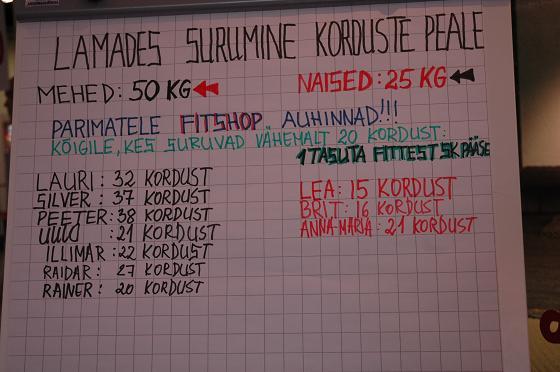 LAMADES SURUMINE KORDUSTE PEALE
MEHED: 50 KG
NAISED: 25 KG
PARIMATELE FITSHOP AUHINNAD!!!
KÕIGILE, KES SURUVAD VÄHEMALT 20 KORDUST:
1 TASUTA FITTEST SK PÄÄSE
LAURI: 32 KORDUST
SILVER: 37 KORDUST
PEETER: 38 KORDUST
UUID: 21 KORDUST
ILLIMAR: 22 KORDUST
RAIDAR: 27 KORDUST
RAINER: 20 KORDUST
LEA: 15 KORDUST
BRIT: 16 KORDUST
ANNA-MARIA: 21 KORDUST